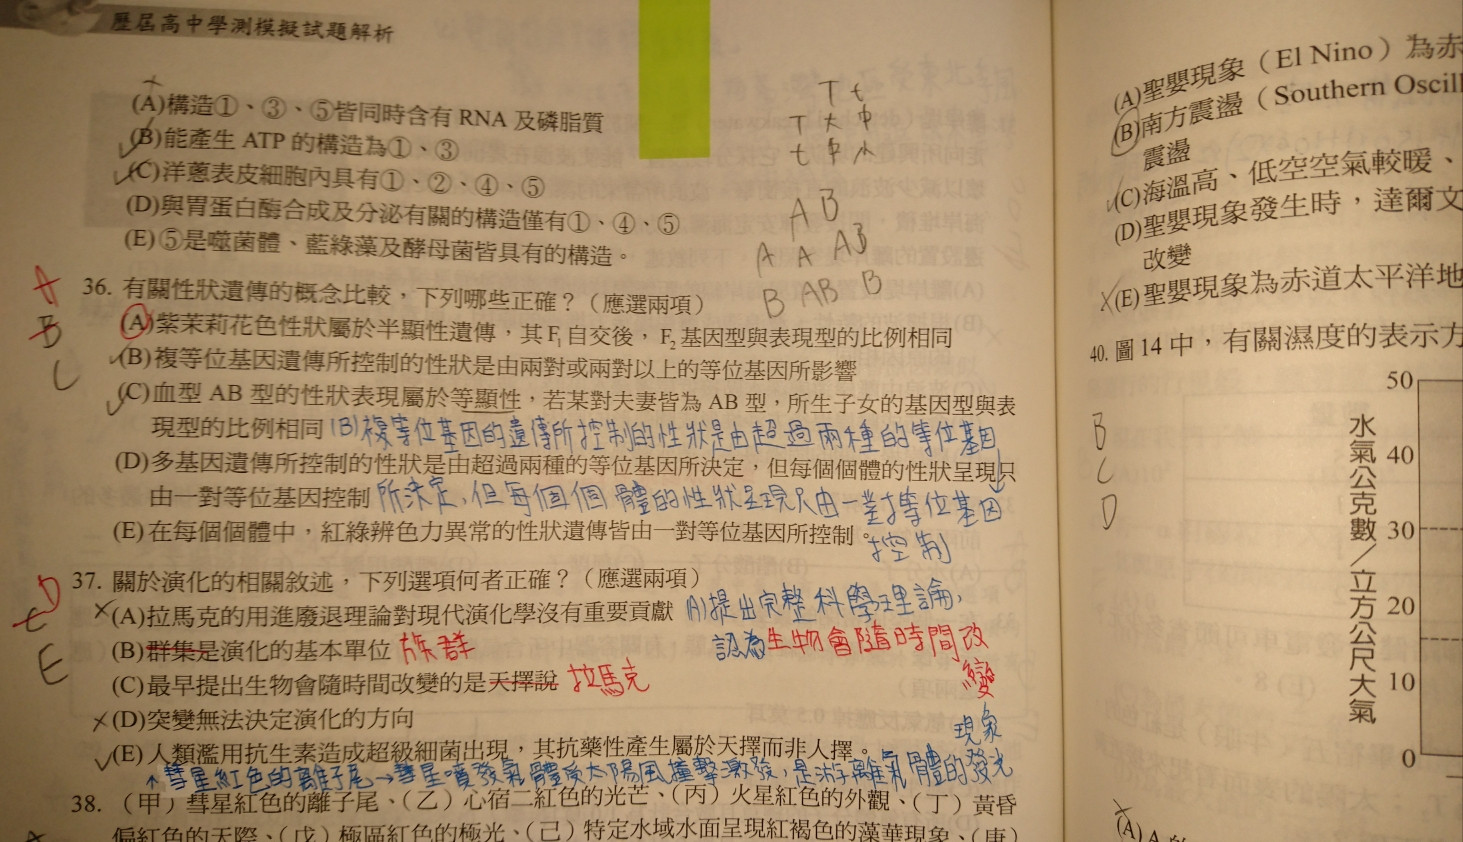 歷屆高中學測模擬試題解析
(A)構造①、③、⑤皆同時含有 RNA 及磷脂質
(B)能產生 ATP 的構造為①、③
(C)洋蔥表皮細胞內具有①、②、④、⑤
(D)與胃蛋白酶合成及分泌有關的構造僅有①、④、⑤
(E)⑤是噬菌體、藍綠藻及酵母菌皆具有的構造。
T t
T 大 中
t 中 小
A B
A A AB
B AB B
A
B
C
36. 有關性狀遺傳的概念比較，下列哪些正確？（應選兩項）
(A)紫茉莉花色性狀屬於半顯性遺傳，其 F₁ 自交後，F₂ 基因型與表現型的比例相同
(B)複等位基因遺傳所控制的性狀是由兩對或兩對以上的等位基因所影響
(C)血型 AB 型的性狀表現屬於等顯性，若某對夫妻皆為 AB 型，所生子女的基因型與表
現型的比例相同 (B)複等位基因的遺傳所控制的性狀是由超過兩種的等位基因
(D)多基因遺傳所控制的性狀是由超過兩種的等位基因所決定，但每個個體的性狀呈現只
由一對等位基因控制 所決定，但每個個體的性狀呈現只由一對等位基因
(E)在每個個體中，紅綠辨色力異常的性狀遺傳皆由一對等位基因所控制。控制
D
E
E
37. 關於演化的相關敘述，下列選項何者正確？（應選兩項）
(A)拉馬克的用進廢退理論對現代演化學沒有重要貢獻 (A)提出完整科學理論，
認為生物會隨時間改
變
(B)群集是演化的基本單位 族群
(C)最早提出生物會隨時間改變的是天擇說 拉馬克
(D)突變無法決定演化的方向
(E)人類濫用抗生素造成超級細菌出現，其抗藥性產生屬於天擇而非人擇。
現象
↑彗星紅色的離子尾→彗星噴發氣體受太陽風撞擊激發，是游離氣體的發光
38. （甲）彗星紅色的離子尾、（乙）心宿二紅色的光芒、（丙）火星紅色的外觀、（丁）黃昏
偏紅色的天際、（戊）極區紅色的極光、（己）特定水域水面呈現紅褐色的藻華現象、（庚）
(A)聖嬰現象（El Nino）為赤
(B)南方震盪（Southern Oscill
震盪
(C)海溫高、低空空氣較暖、
(D)聖嬰現象發生時，達爾文
改變
(E)聖嬰現象為赤道太平洋地
40. 圖 14 中，有關濕度的表示方
B
C
D
水氣公克數／立方公尺大氣
50
40
30
20
10
0
(A)